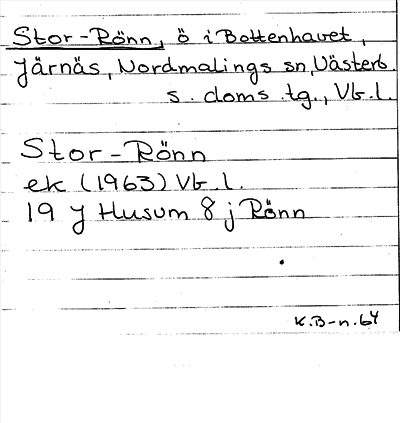 Stor-Rönn, ö i Bottenhavet,
Järnäs, Nordmalings sn, Västerb.
s. doms. tg., Vb. l.
Stor-Rönn
ek (1963) Vb. l.
19 J Husum 8 j Rönn
K.B-n. 64